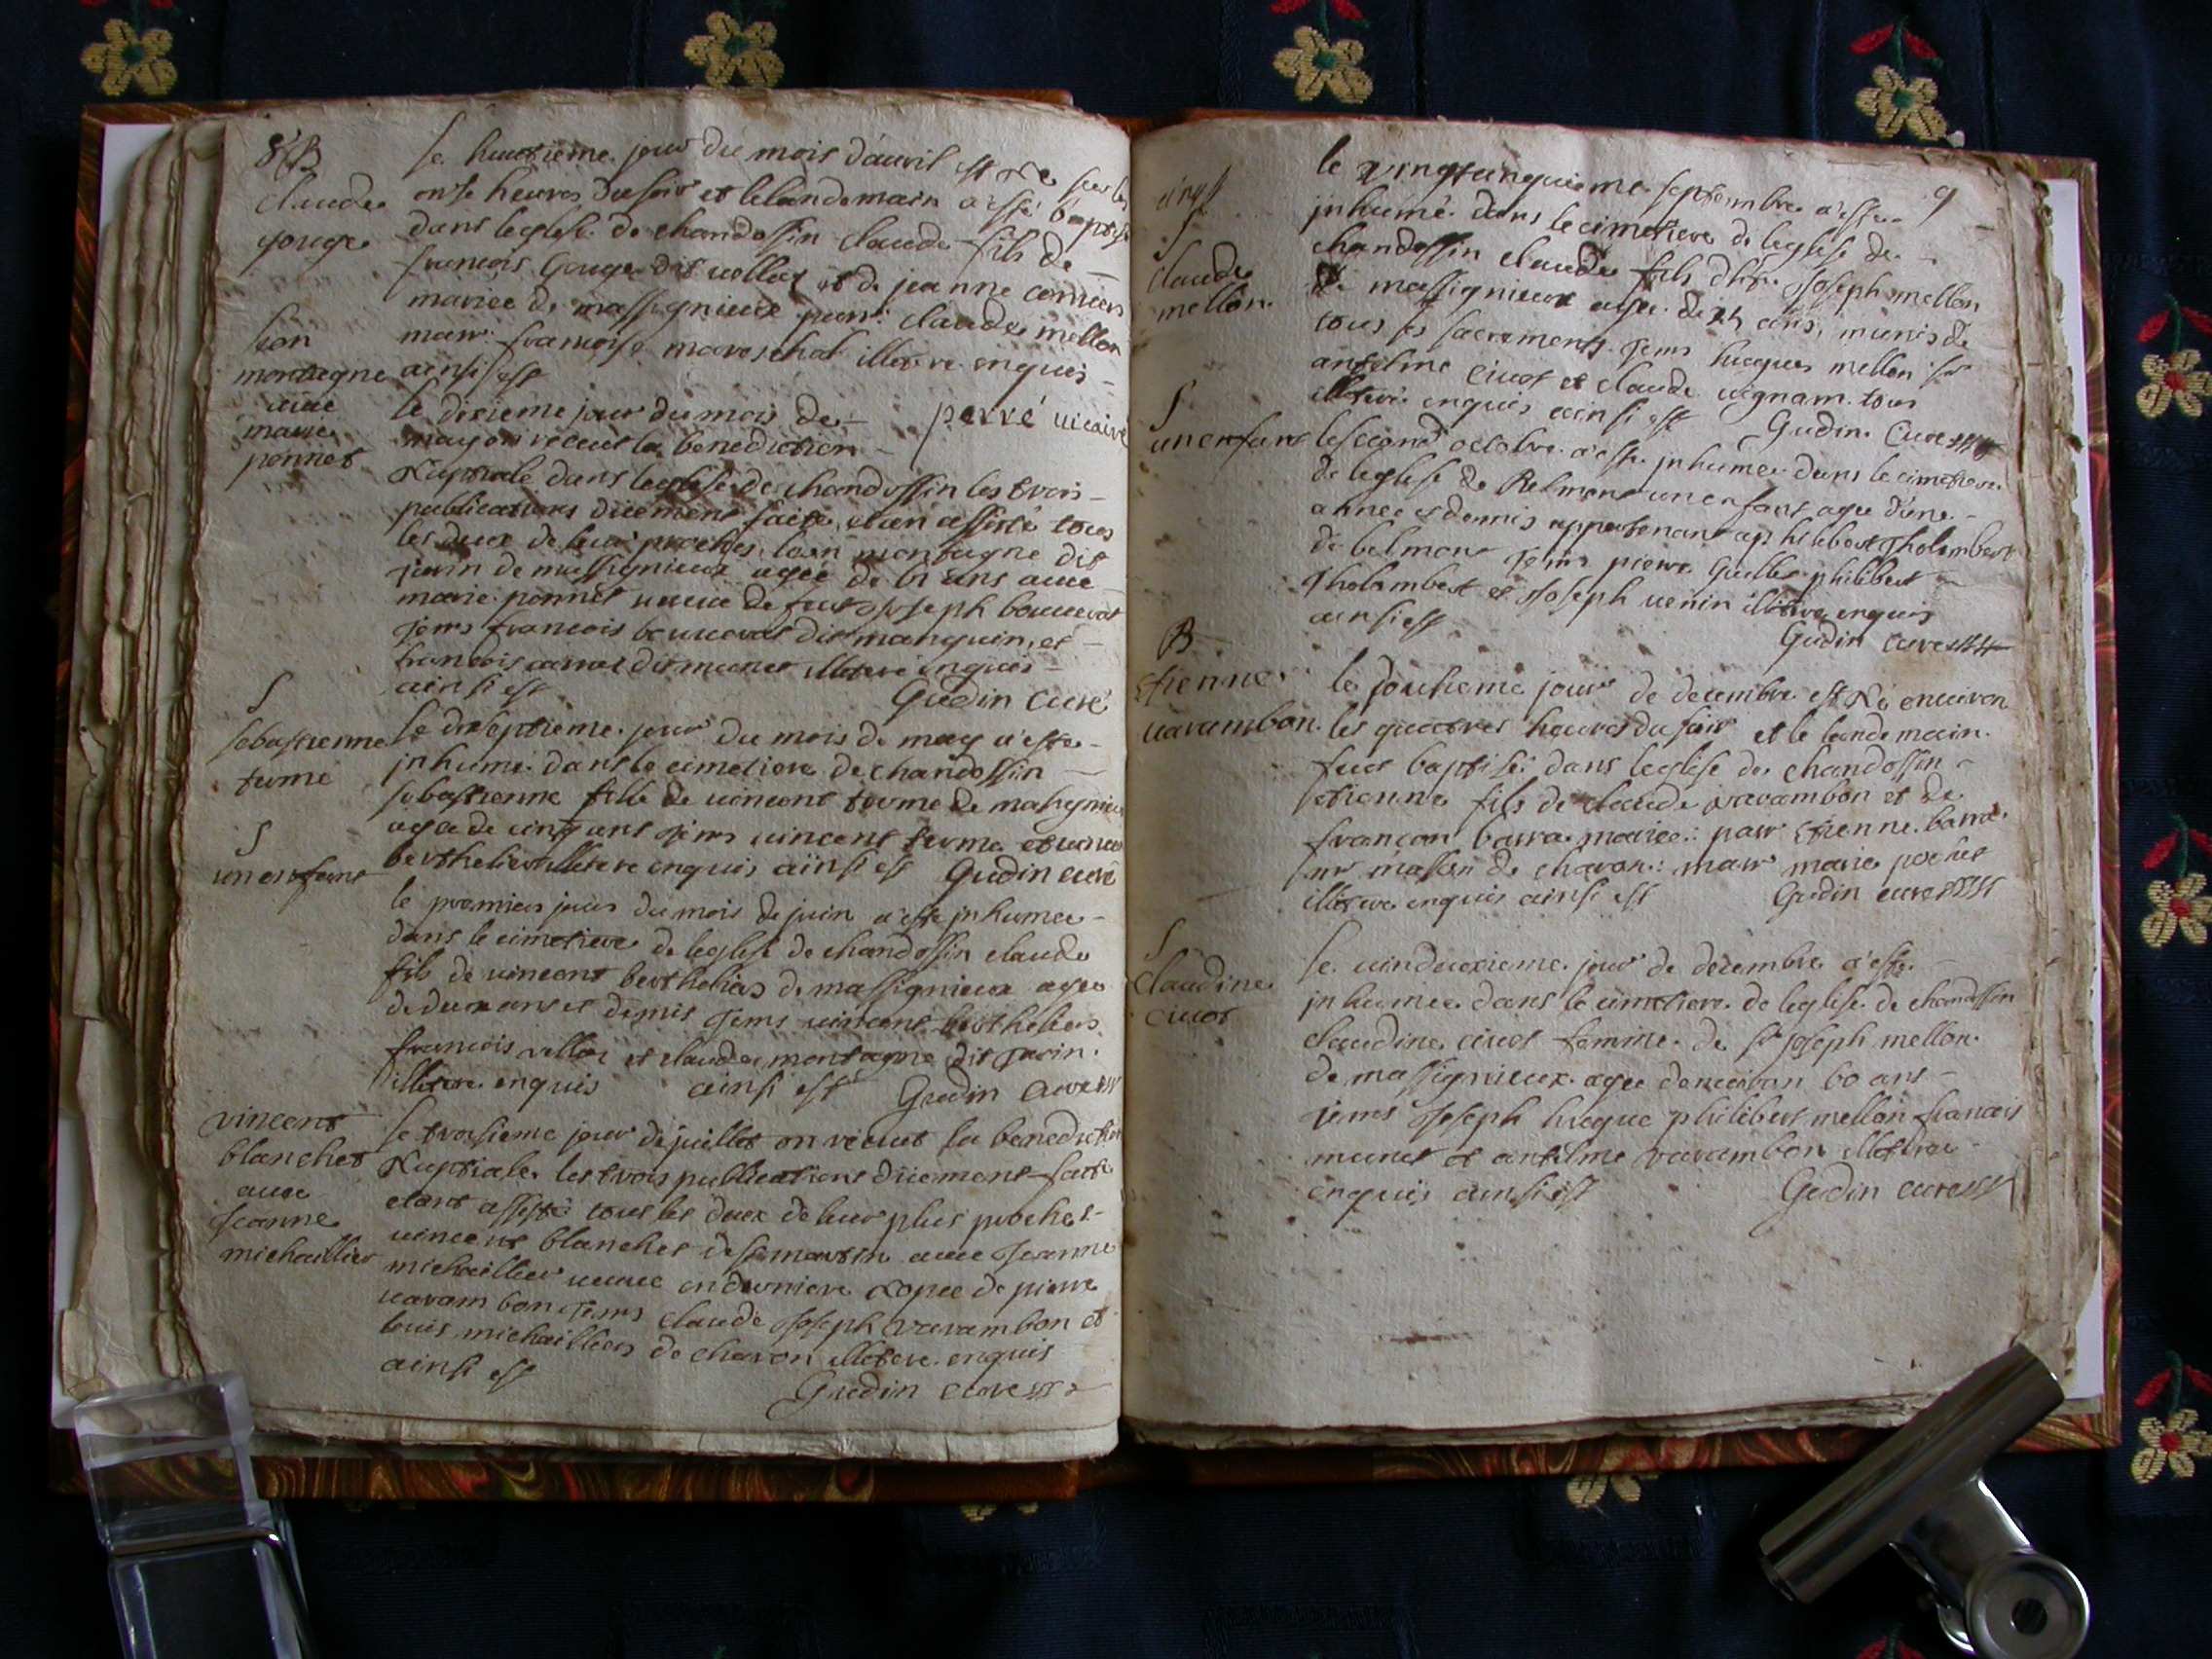 8 B
Claude
gouge
le huictieme jour du mois dauril est né sur les
onse heures du soir et le landemain a esté baptisé
dans leglise de chandossin claude fils de
francois Gouge dit uollet et de jeanne
mariee de massignieux parr: claude mellon
marr: francoise mareschal illetere enquis
ainsi est
perré uicaire
lean
montagne
auec
marie
pennet
le dixieme jour du mois de
may on receut la benediction
Nuptiale dans leglise de chandossin les trois
publications düement faite, etan assisté tous
les deux de leur proches, lean montagne dit
jurin de massignieux agée de 61 ans auec
marie pennet ueuue de feut Joseph bouuerat
Tems francois bouuerat dit manquin, et
francois carret dit munet illetere enquis
ainsi est
Gudin Curé
S
sebastienne
terme
le disseptieme jour du mois de may a este
inhumé dans le cimetiere de chandossin
sebastienne fille de uincent terme de massignieu
agea de cinq ans Tems uincent terme et uincent
berthelier illetere enquis ainsi est Gudin curé
S
un enfant
le premier jour du mois de juin a este inhumee
dans le cimetiere de leglise de chandossin claude
fils de uincent berthelier de massignieux agee
de deux ans et demis Tems uincent berthelier
francois uollet et claude montagne dit jurin
illetere enquis ainsi est Gudin Cure
vincent
blanchet
auec
Jeanne
michaillier
le troisieme jour de juillet on receut la benediction
Nuptiale les trois publications düement faite
etant assisté tous les deux de leur plus proches
uincent blanchet de st martin auec Jeanne
michaillier ueuue en derniere Nopce de pierre
uarambon Tems claude Joseph varambon et
louis michaillier de charon illetere enquis
ainsi est
Gudin cure
9
S
Claude
mellon
le vingtcinquieme septembre a este
inhumé dans le cimetiere de leglise de
chandossin claude fils d'h. Joseph mellon
de massignieux agee de ans, munis de
tous ses sacrements Tems hugues mellon
antelme ciuot et claude uignam tous
illeteré enquis ainsi est Gudin Cure
S
un enfant
le second octobre a este inhumee dans le cimetiere
de leglise de Belmont un enfant agee d'une
annee et demis appartenant a philibert Tholombert
de belmont Tems pierre Guilles philibert
Tholombert et Joseph uenin illetere enquis
ainsi est
Gudin cure
B
Etienne
uarambon
le jour de decembre est Né enuiron
les quattres heures du soir et le landemain
fut baptisé dans leglise de chandossin
etienne fils de claude varambon et de
francon barra mariee: parr Etienne barra
mr masson de charon: marr marie pochet
illetere enquis ainsi est Gudin cure
S
Claudine
ciuot
le uinduexieme jour de decembre a este
inhumee dans le cimetiere de leglise de chandossin
claudine ciuot femme de sr joseph mellon
de massignieux agee denuiron 60 ans
Tems Joseph hugue philibert mellon francois
munet et antelme varambon illetere
enquis ainsi est Gudin cure